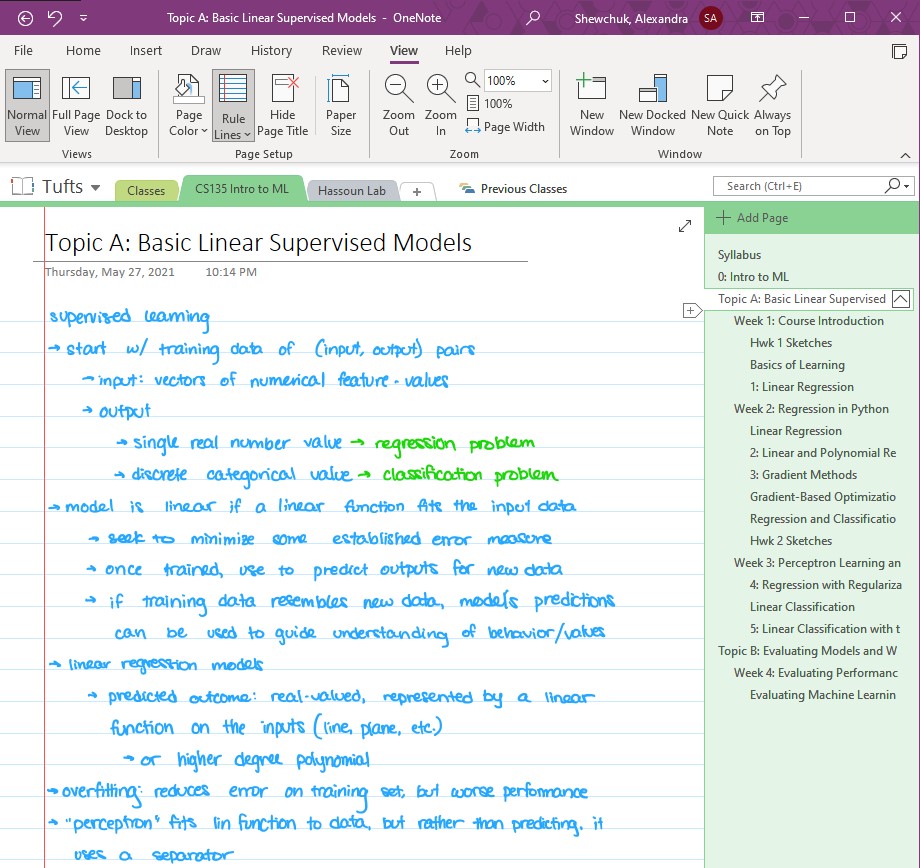 Topic A: Basic Linear Supervised Models - OneNote
Shewchuk, Alexandra
SA
File Home Insert Draw History Review View Help
Normal View
Full Page View
Dock to Desktop
Page Color
Rule Lines
Hide Page Title
Paper Size
Zoom Out
Zoom In
100%
100%
Page Width
New Window
New Docked Window
New Quick Note
Always on Top
Views
Page Setup
Zoom
Window
Tufts
Classes
CS135 Intro to ML
Hassoun Lab
+
Previous Classes
Search (Ctrl+E)
Topic A: Basic Linear Supervised Models
Thursday, May 27, 2021 10:14 PM
supervised learning
→ start w/ training data of (input, output) pairs
→ input: vectors of numerical feature-values
→ output
→ single real number value → regression problem
→ discrete categorical value → classification problem
→ model is linear if a linear function fits the input data
→ seek to minimize some established error measure
→ once trained, use to predict outputs for new data
→ if training data resembles new data, model's predictions
can be used to guide understanding of behavior/values
→ linear regression models
→ predicted outcome: real-valued, represented by a linear
function on the inputs (line, plane, etc.)
→ or higher degree polynomial
→ overfitting: reduces error on training set, but worse performance
→ "perceptron" fits lin function to data, but rather than predicting, it
uses a separator
Add Page
Syllabus
0: Intro to ML
Topic A: Basic Linear Supervised
Week 1: Course Introduction
Hwk 1 Sketches
Basics of Learning
1: Linear Regression
Week 2: Regression in Python
Linear Regression
2: Linear and Polynomial Re
3: Gradient Methods
Gradient-Based Optimizatio
Regression and Classificatio
Hwk 2 Sketches
Week 3: Perceptron Learning an
4: Regression with Regulariza
Linear Classification
5: Linear Classification with t
Topic B: Evaluating Models and W
Week 4: Evaluating Performanc
Evaluating Machine Learnin